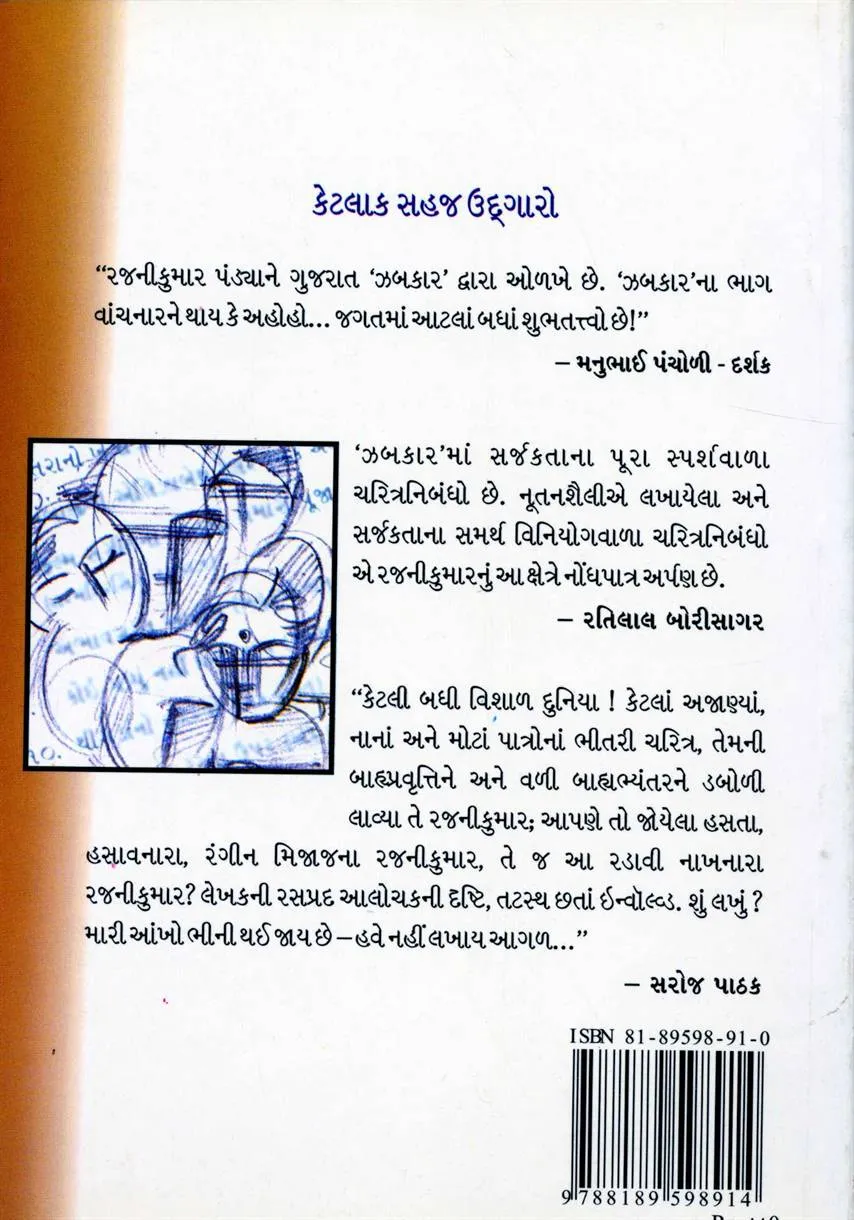 કેટલાક સહજ ઉદ્‌ગારો
“રજનીકુમાર પંડ્યાને ગુજરાત ‘ઝબકાર’ દ્વારા ઓળખે છે. ‘ઝબકાર’ના ભાગ
વાંચનારને થાય કે અહોહો... જગતમાં આટલાં બધાં શુભતત્ત્વો છે!”
– મનુભાઈ પંચોળી - દર્શક
‘ઝબકાર’માં સર્જકતાના પૂરા સ્પર્શવાળા
ચરિત્રનિબંધો છે. નૂતનશૈલીએ લખાયેલા અને
સર્જકતાના સમર્થ વિનિયોગવાળા ચરિત્રનિબંધો
એ રજનીકુમારનું આ ક્ષેત્રે નોંધપાત્ર અર્પણ છે.
– રતિલાલ બોરીસાગર
“કેટલી બધી વિશાળ દુનિયા ! કેટલાં અજાણ્યાં,
નાનાં અને મોટાં પાત્રોનાં ભીતરી ચરિત્ર, તેમની
બાહ્યપ્રવૃત્તિને અને વળી બાહ્યભ્યંતરને ડબોળી
લાવ્યા તે રજનીકુમાર; આપણે તો જોયેલા હસતા,
હસાવનારા, રંગીન મિજાજના રજનીકુમાર, તે જ આ રડાવી નાખનારા
રજનીકુમાર? લેખકની રસપ્રદ આલોચકની દૃષ્ટિ, તટસ્થ છતાં ઇન્વૉલ્વ્ડ. શું લખું ?
મારી આંખો ભીની થઈ જાય છે – હવે નહીં લખાય આગળ...”
– સરોજ પાઠક
ISBN 81-89598-91-0
9 788189 598914